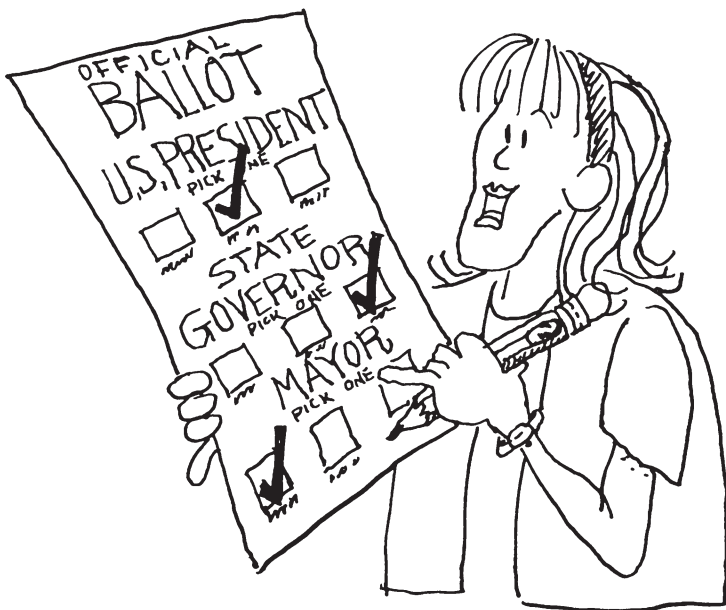 OFFICIAL
BALLOT
U.S. PRESIDENT
PICK NE
STATE
GOVERNOR
PICK ONE
MAYOR
PICK ONE